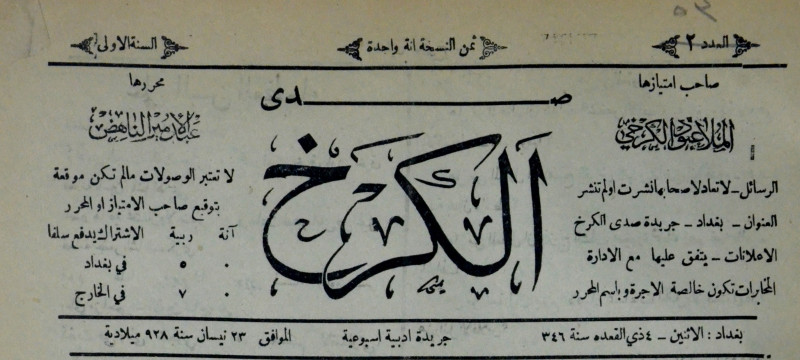 العدد ٢
ثمن النسخة انة واحدة
السنة الاولى
صاحب امتيازها
الملا عبود الكرخي
الرسائل – لاتعاد لاصحابها نشرت اولم تنشر
العنوان – بغداد – جريدة صدى الكرخ
الاعلانات – يتفق عليها مع الادارة
المخابرات تكون خالصة الاجرة وباسم المحرر
صدى
الكرخ
محررها
عبد الامير الناهض
لا تعتبر الوصولات مالم تكن موقعة
بتوقيع صاحب الامتياز او المحرر
آنة ربية الاشتراك يدفع سلفا
٠ ٥ في بغداد
٠ ٧ في الخارج
بغداد : الاثنين – ٤ ذي القعده سنة ٣٤٦
جريدة ادبية اسبوعية
الموافق ٢٣ نيسان سنة ٩٢٨ ميلادية